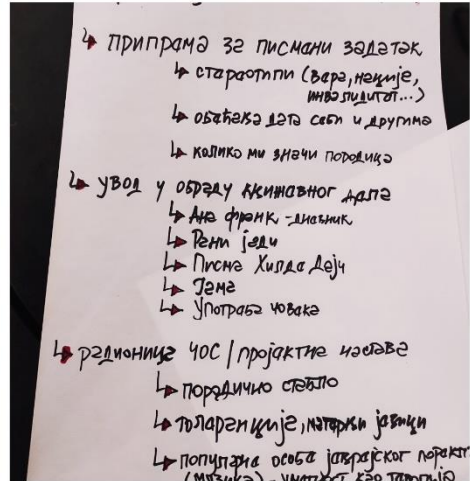 припрама за писмани задатак
стараотипи (вара, нације,
инвалидитат...)
обаћања дата саби и другима
колико ми значи породица
увод у обраду књижавног дала
Ана франк - днавник
Рани јади
Писма Хилда Дајч
Јама
Употраба човака
радионица ЧОС / пројактна настава
породично стабло
толаранција, матарњи јазици
популарна особа јаврајског поракла
(музика) - уматност као тарапија